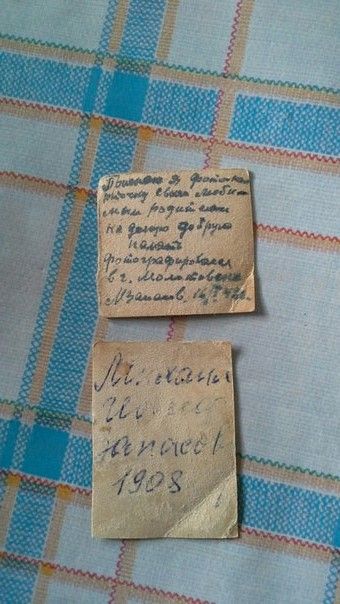 Посилаю я фотокар
точку своим люби-
мым родителям
на долгую добрую
память
фотографировался
в г. Молотовске
Михаил
1908